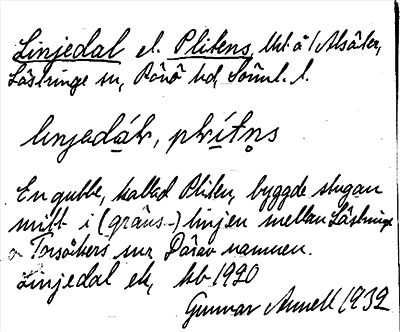 Linjedal el. Plitens, lht å 1 Alsäter,
Lästringe sn, Rönö hd, Söml. l.
linjedáɫ, plítn̥s
En gubbe, kallad Pliten, byggde stugan
mitt i (gräns-) linjen mellan Lästringe
o Torsåkers snr Därav namnen.
Linjedal ek, kb 1920
Gunnar Annell 1932